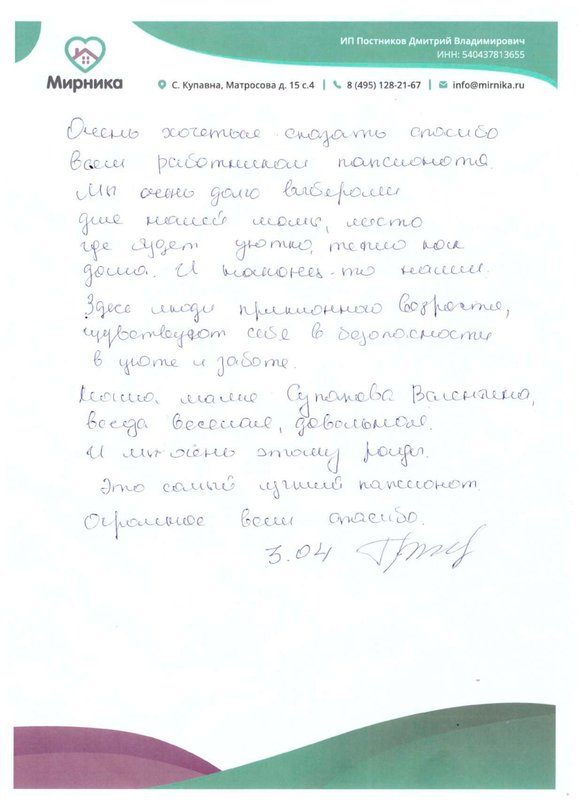 ИП Постников Дмитрий Владимирович
ИНН: 540437813655
Мирника
С. Купавна, Матросова д. 15 с.4 | 8 (495) 128-21-67 | info@mirnika.ru
Очень хочеться сказать спасибо
всем работникам пансионата.
Мы очень долго выбирали
для нашей мамы, место
где будет уютно, тепло как
дома. И наконец-то нашли.
Здесь люди преклонного возраста,
чувствуют себя в безопасности
в уюте и заботе.
Наша мама Супакова Валентина,
всегда веселая, довольная.
И мы очень этому рады.
Это самый лучший пансионат.
Огромное всем спасибо.
3.04